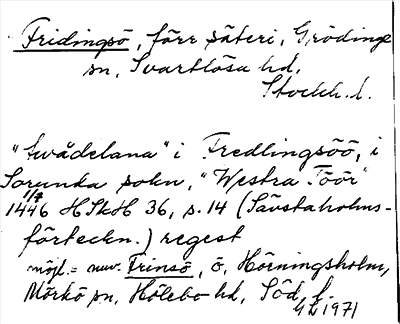 Fridingsö, förr säteri, Grödinge
sn, Svartlösa hd,
Stockh. l.
"twådelana" i Fredlingsöö, i
Sorunda sokn, "Westra Töör"
1/7
1446 HSkH 36, s. 14 (Sävstaholms-
förteckn.) regest
möjl. = nuv. Frinsö, ö, Hörningsholm,
Mörkö sn, Hölebo hd, Söd. l.
1971